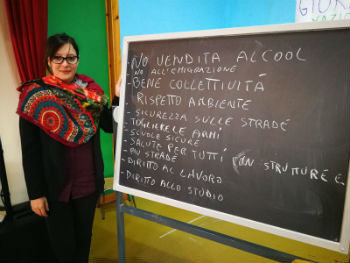 GIOR
NAZIO
- NO VENDITA ALCOOL
- NO ALL'EMIGRAZIONE
- BENE COLLETTIVITÁ
- RISPETTO AMBIENTE
- SICUREZZA SULLE STRADE
- TOGLIERE LE ARMI
- SCUOLE SICURE
- SALUTE PER TUTTI CON STRUTTURE E
- PIÙ STRADE
- DIRITTO AL LAVORO
- DIRITTO ALLO STUDIO